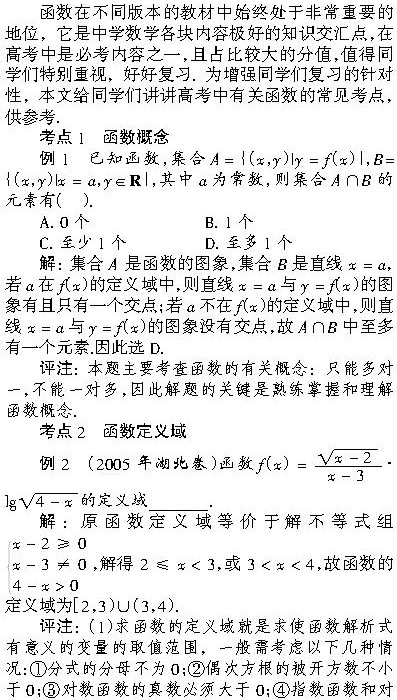 函数在不同版本的教材中始终处于非常重要的
地位，它是中学数学各块内容极好的知识交汇点,在
高考中是必考内容之一,且占比较大的分值,值得同
学们特别重视，好好复习. 为增强同学们复习的针对
性，本文给同学们讲讲高考中有关函数的常见考点,
供参考.
考点 1 函数概念
例 1 已知函数,集合 A = {(x,y)|y = f(x)},B=
{(x,y)|x = a,y∈R},其中 a 为常数,则集合 A∩B 的
元素有( ).
A. 0 个 B. 1 个
C. 至少 1 个 D. 至多 1 个
解: 集合 A 是函数的图象,集合 B 是直线 x = a,
若 a 在 f(x)的定义域中,则直线 x = a 与 y = f(x)的图
象有且只有一个交点;若 a 不在 f(x)的定义域中,则直
线 x = a 与 y = f(x)的图象没有交点,故 A∩B 中至多
有一个元素.因此选 D.
评注: 本题主要考查函数的有关概念: 只能多对
一,不能一对多,因此解题的关键是熟练掌握和理解
函数概念.
考点 2 函数定义域
例 2 (2005 年湖北卷)函数 f(x) = √(x－2)/(x－3) ·
lg√(4－x) 的定义域______.
解: 原函数定义域等价于解不等式组
{x－2 ≥ 0
x－3 ≠ 0 ,解得 2 ≤ x < 3,或 3 < x < 4,故函数的
4－x > 0
定义域为[2,3)∪(3,4).
评注: (1)求函数的定义域就是求使函数解析式
有意义的变量的取值范围，一般需考虑以下几种情
况:①分式的分母不为 0;②偶次方根的被开方数不小
于 0;③对数函数的真数必须大于 0;④指数函数和对